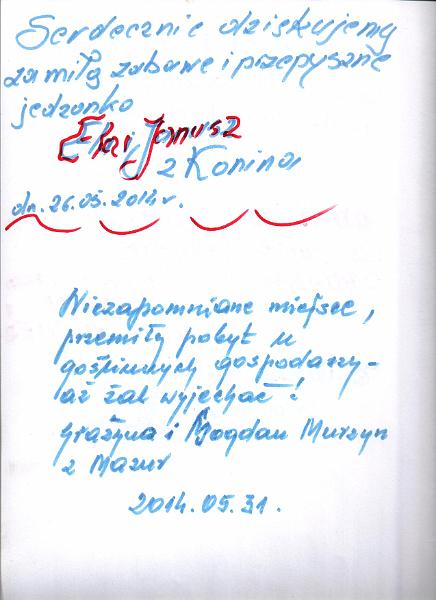 Serdecznie dziękujemy
za miłą zabawę i przepyszne
jedzonko
Ela i Janusz
z Konina
dn. 26.05.2014 r.
Niezapomniane miejsce,
przemiły pobyt u
gościnnych gospodarzy -
aż żal wyjechać!
Grażyna i Bogdan Murzyn
z Mazur
2014.05.31.